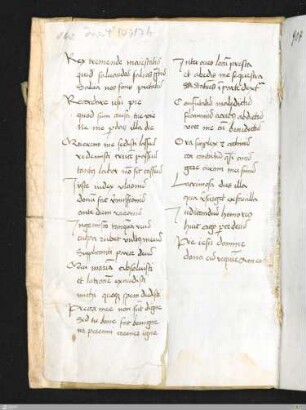 Rex tremende maiestatis
qui salvandos salvas gratis
Salva me fons pietatis
Recordare iesu pie
quod sum causa tue vie
Ne me perdas illa die
Querens me sedisti lassus
redemisti crucem passus
tantus labor non sit cassus
Iuste iudex ultionis
donum fac remissionis
ante diem rationis
Ingemisco tanquam reus
culpa rubet vultus meus
Supplicanti parce deus
Qui mariam absolvisti
et latronem exaudisti
michi quoque spem dedisti
Preces mee non sunt digne
Sed tu bone fac benigne
ne perenni cremer igne
Inter oves locum presta
et ab edis me sequestra
Statuens in parte dextra
Confutatis maledictis
flammis acribus addictis
voca me cum benedictis
Oro supplex et acclinis
cor contritum quasi cinis
gere curam mei finis
Lacrimosa dies illa
qua resurget ex favilla
Iudicandus homo reus
huic ergo parce deus
Pie iesu domine
dona eis requiem